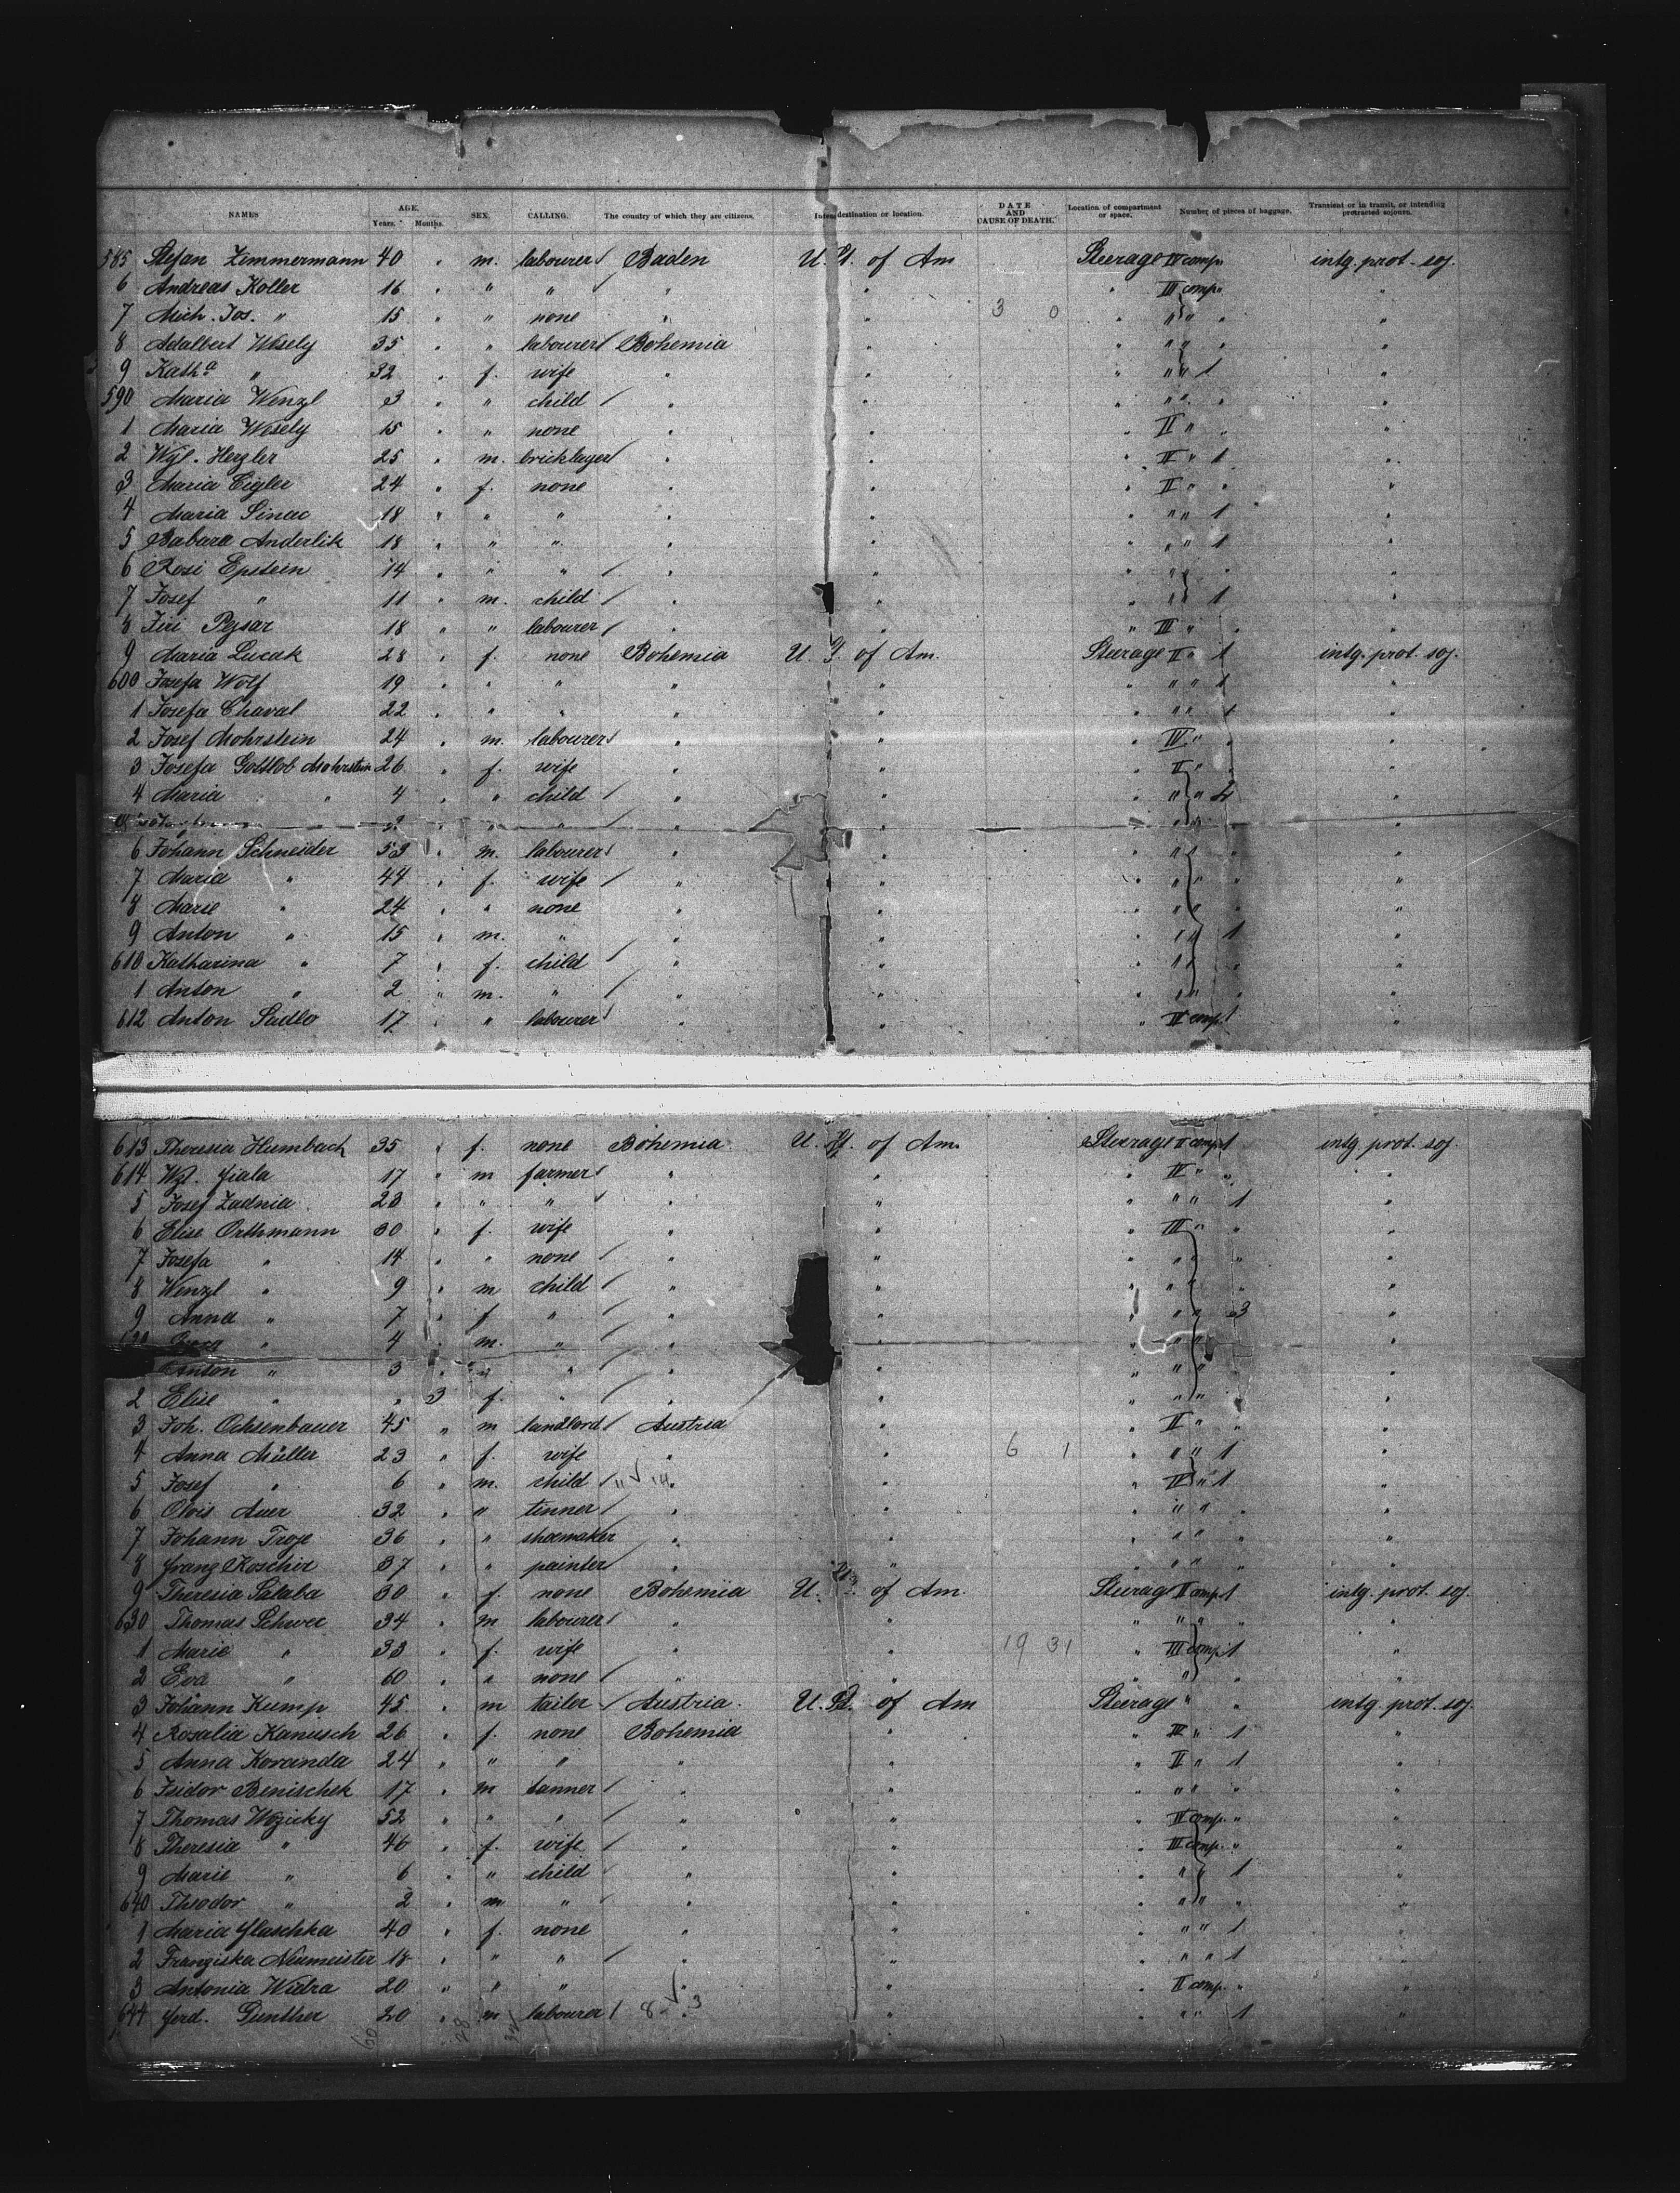 NAMES AGE. Years. Months. SEX. CALLING. The country of which they are citizens. Intended destination or location. DATE AND CAUSE OF DEATH. Location of compartment or space. Number of pieces of baggage. Transient or in transit, or intending protracted sojourn.
585 Stefan Zimmermann 40 " m. labourer Baden U. St. of Am Steerage IV comp " intg. prot. soj.
6 Andreas Koller 16 " " " " " " III comp " "
7 Mich. Jos. " 15 " " none " " 3 0 " " " " "
8 Adalbert Wesely 35 " " labourer Bohemia " " " " " "
9 Katha " 32 " f. wife " " " " " 1 "
590 Maria Wenzl 3 " " child " " " " " " "
1 Maria Wesely 15 " " none " " " II " " "
2 Wzl. Herzler 25 " m. bricklayer " " " IV " 1 "
3 Maria Cigler 24 " f. none " " " II " " "
4 Maria Sinac 18 " " " " " " " " 1 "
5 Babara Anderlik 18 " " " " " " " " 1 "
6 Rosi Epstein 14 " " " " " " " " " "
7 Josef " 11 " m. child " " " " " 1 "
8 Jiri Pejsar 18 " " labourer " " " III " " "
9 Maria Lucak 28 " f. none Bohemia U. S. of Am. Steerage II " 1 intg. prot. soj.
600 Josefa Wolf 19 " " " " " " " " 1 "
1 Josefa Chaval 22 " " " " " " " " 1 "
2 Josef Mohrstein 24 " m. labourer " " " IV " " "
3 Josefa Gottlob Mohrstein 26 " f. wife " " " II " " "
4 Maria " 4 " " child " " " " " 2 "
6 Johann Schneider 53 " m. labourer " " " " " "
7 Maria " 44 " f. wife " " " " " " "
8 Marie " 24 " " none " " " " " "
9 Anton " 15 " m. " " " " " " 1 "
610 Katharina " 7 " f. child " " " " " " "
1 Anton " 2 " m. " " " " " " " "
612 Anton Sadlo 17 " " labourer " " " IV comp. 1 "
613 Theresia Humbach 35 " f. none Bohemia U. St. of Am. Steerage II comp 1 intg. prot. soj.
614 Wzl. Fiala 17 " m farmer " " " IV " " "
5 Josef Zadnia 28 " " " " " " " " 1 "
6 Elise Orthmann 30 " f. wife " " " III " " "
7 Josefa " 14 " " none " " " " " " "
8 Wenzl " 9 " m child " " " " " " "
9 Anna " 7 " f " " " " " " 3 "
620 " 4 " m. " " " " " " "
Anton " 3 " " " " " " " " "
2 Elise " " 3 f. " " " " " " "
3 Joh. Ochsenbauer 45 " m landlord Austria " " II " " "
4 Anna Müller 23 " f. wife " " 6 1 " " " 1 "
5 Josef " 6 " m. child " " " IV " 1 "
6 Olois Auer 32 " " tinner " " " " " " "
7 Johann Troje 36 " " shoemaker " " " " " " "
8 Franz Koschir 37 " " painter " " " " " " "
9 Theresia Salaba 30 " f. none Bohemia U. St. of Am. Steerage II comp 1 intg. prot. soj.
630 Thomas Schwec 34 " m labourer " " " " " " "
1 Marie " 33 " f. wife " " 19 31 " III comp. 1 "
2 Eva " 60 " " none " " " " " "
3 Johann Kump 45 " m tailer Austria. U. St. of Am Steerage " " intg. prot. soj.
4 Rosalia Kanusch 26 " f. none Bohemia " " IV " 1 "
5 Anna Koranda 24 " " " " " " II " 1 "
6 Isidor Benischek 17 " m tanner " " " " " " "
7 Thomas Wozicky 52 " " " " " " IV comp. " "
8 Theresia " 46 " f. wife " " " III comp. " "
9 Marie " 6 " " child " " " " " 1 "
640 Theodor " 2 " m " " " " " " " "
1 Maria Flaschka 40 " f. none " " " " " 1 "
2 Franziska Neumeister 18 " " " " " " " " 1 "
3 Antonia Widra 20 " " " " " " II comp. " "
644 Ferd. Gunther 20 " m labourer 8 3 " " " " 1 "